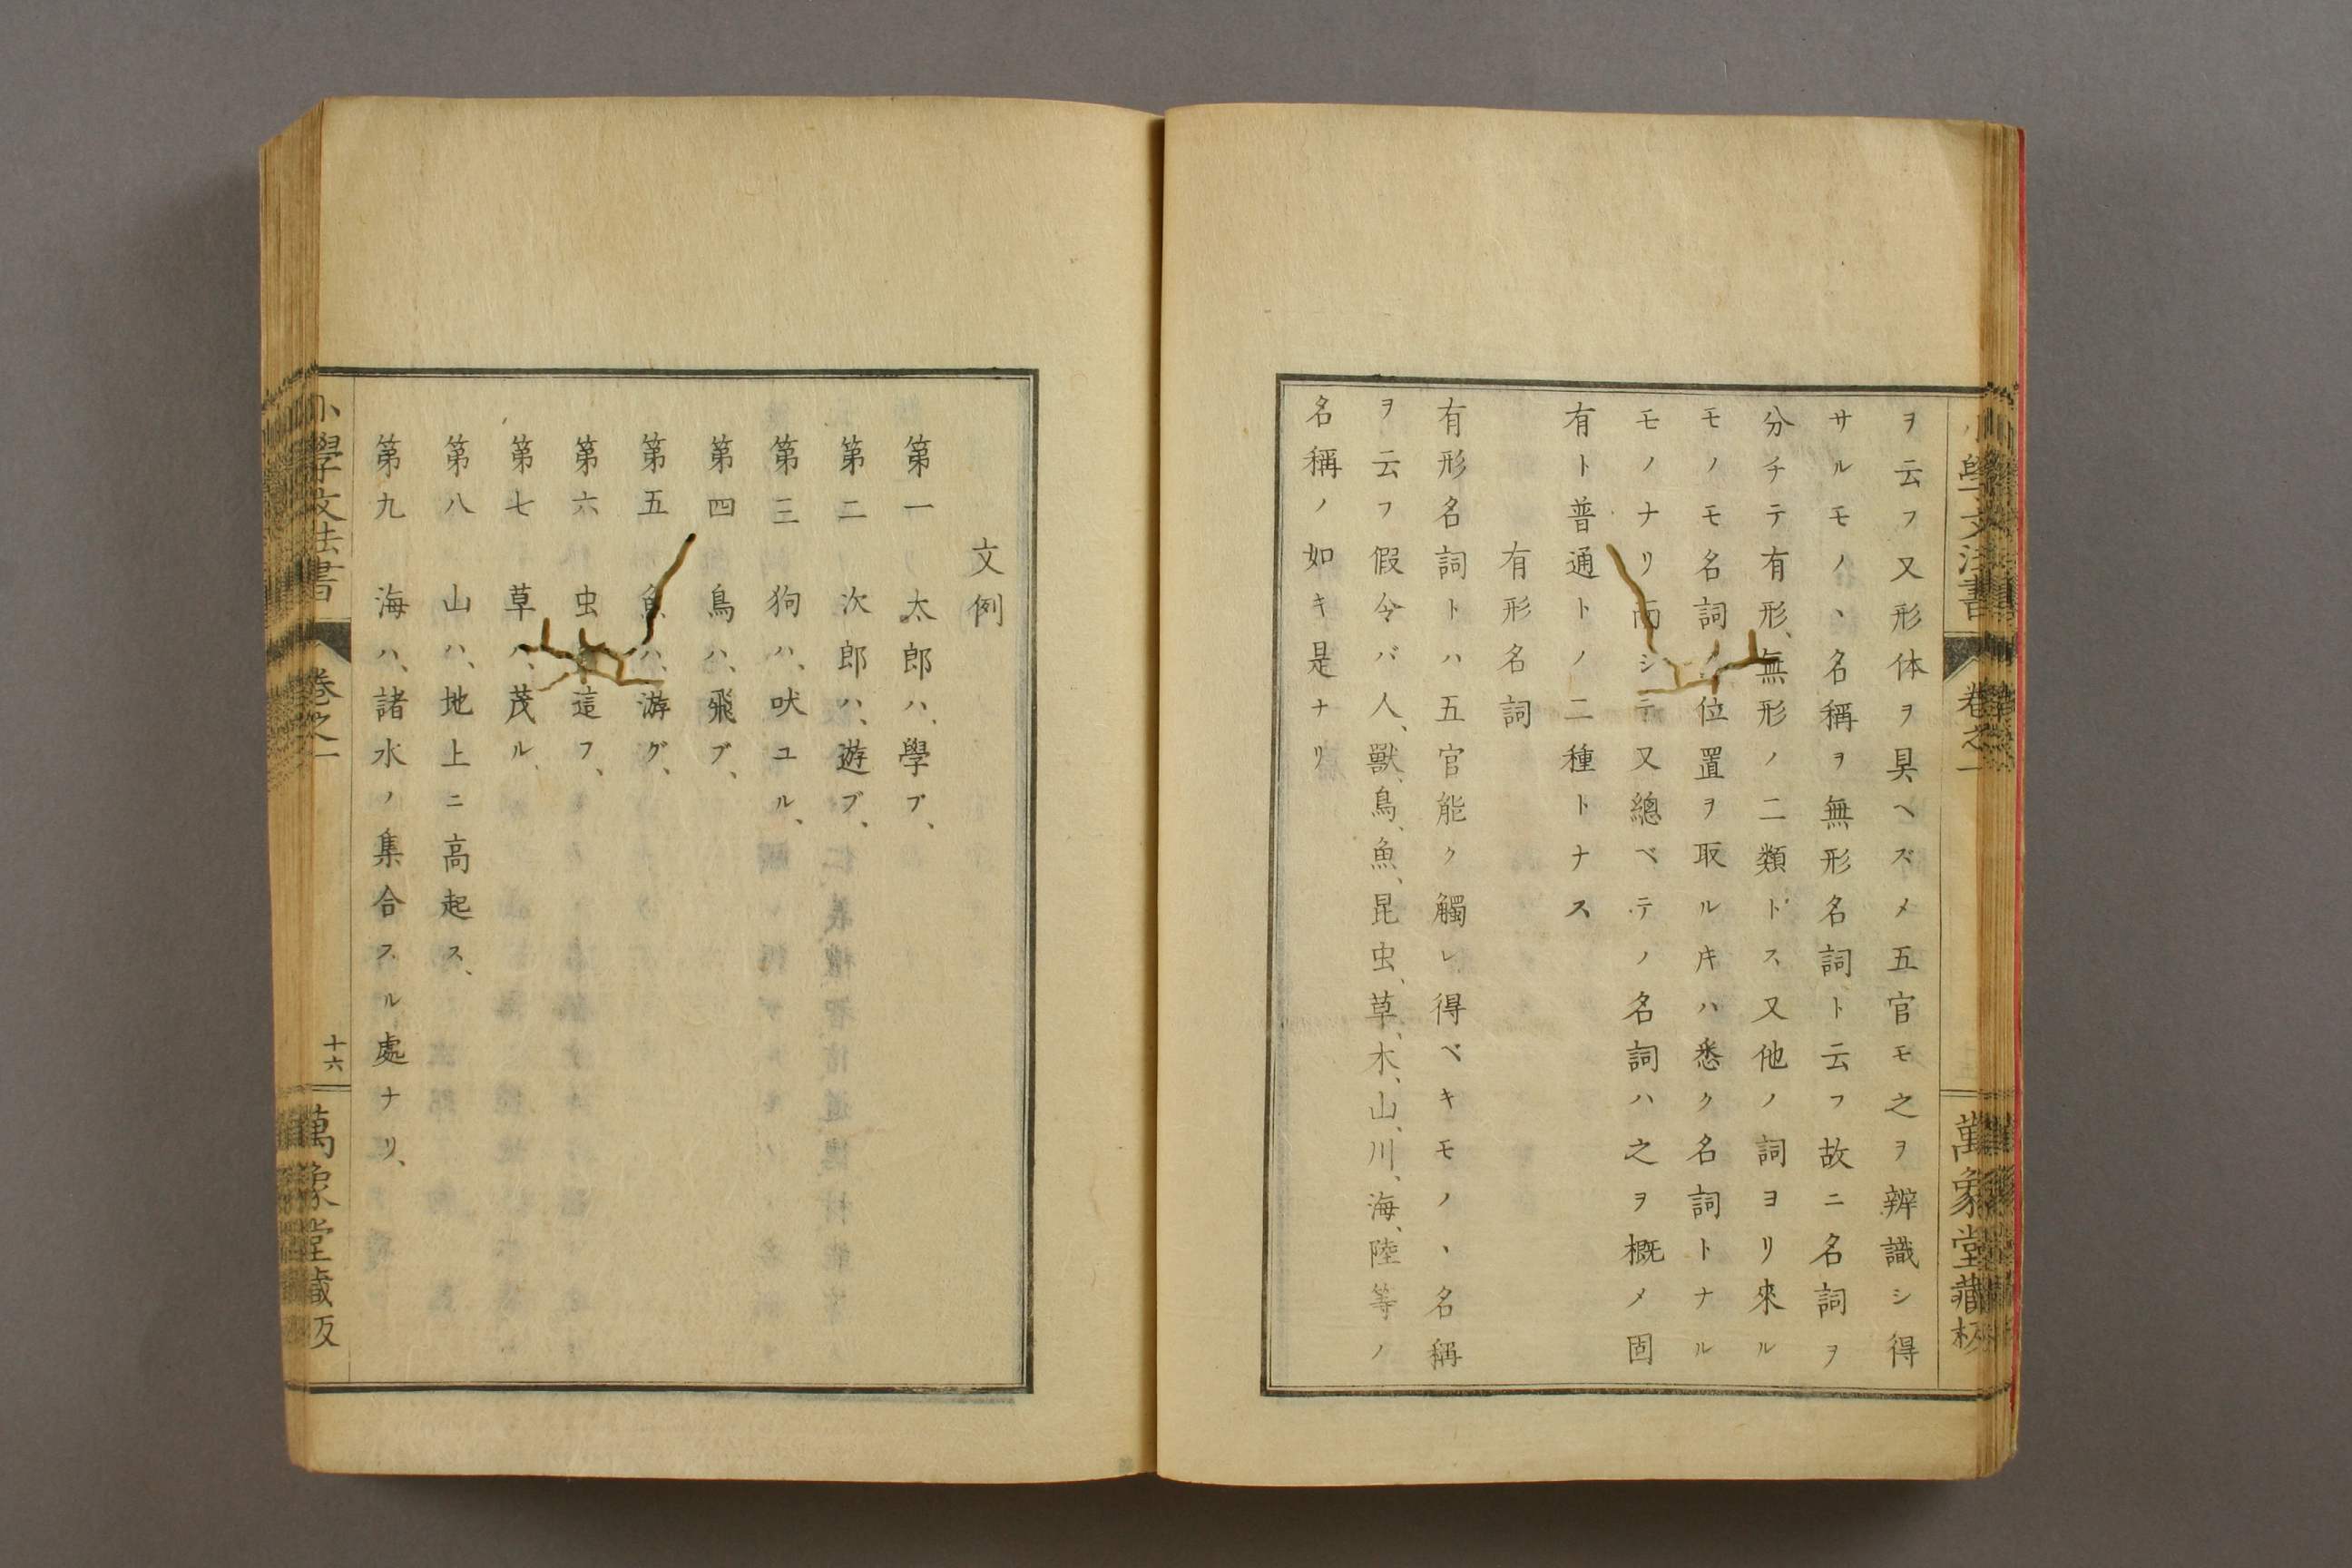 小學文法書 卷之一 萬象堂藏板
ヲ云フ又形体ヲ具ヘズメ五官モ之ヲ辨識シ得
サルモノヽ名稱ヲ無形名詞ト云フ故ニ名詞ヲ
分チテ有形、無形ノ二類トス又他ノ詞ヨリ來ル
モノモ名詞ノ位置ヲ取ルキハ悉ク名詞トナル
モノナリ而シテ又總ベテノ名詞ハ之ヲ概メ固
有ト普通トノ二種トナス
有形名詞
有形名詞トハ五官能ク觸レ得ベキモノヽ名稱
ヲ云フ假令バ人、獸、鳥、魚、昆虫、草、木、山、川、海、陸等ノ
名稱ノ如キ是ナリ
文例
第一 太郎ハ、學ブ、
第二 次郎ハ、遊ブ、
第三 狗ハ、吠ユル、
第四 鳥ハ、飛ブ、
第五 魚ハ、游グ、
第六 虫 這フ、
第七 草ハ、茂ル、
第八 山ハ、地上ニ高起ス、
第九 海ハ、諸水ノ集合スル處ナリ、
小學文法書 卷之一 十六 萬象堂藏板